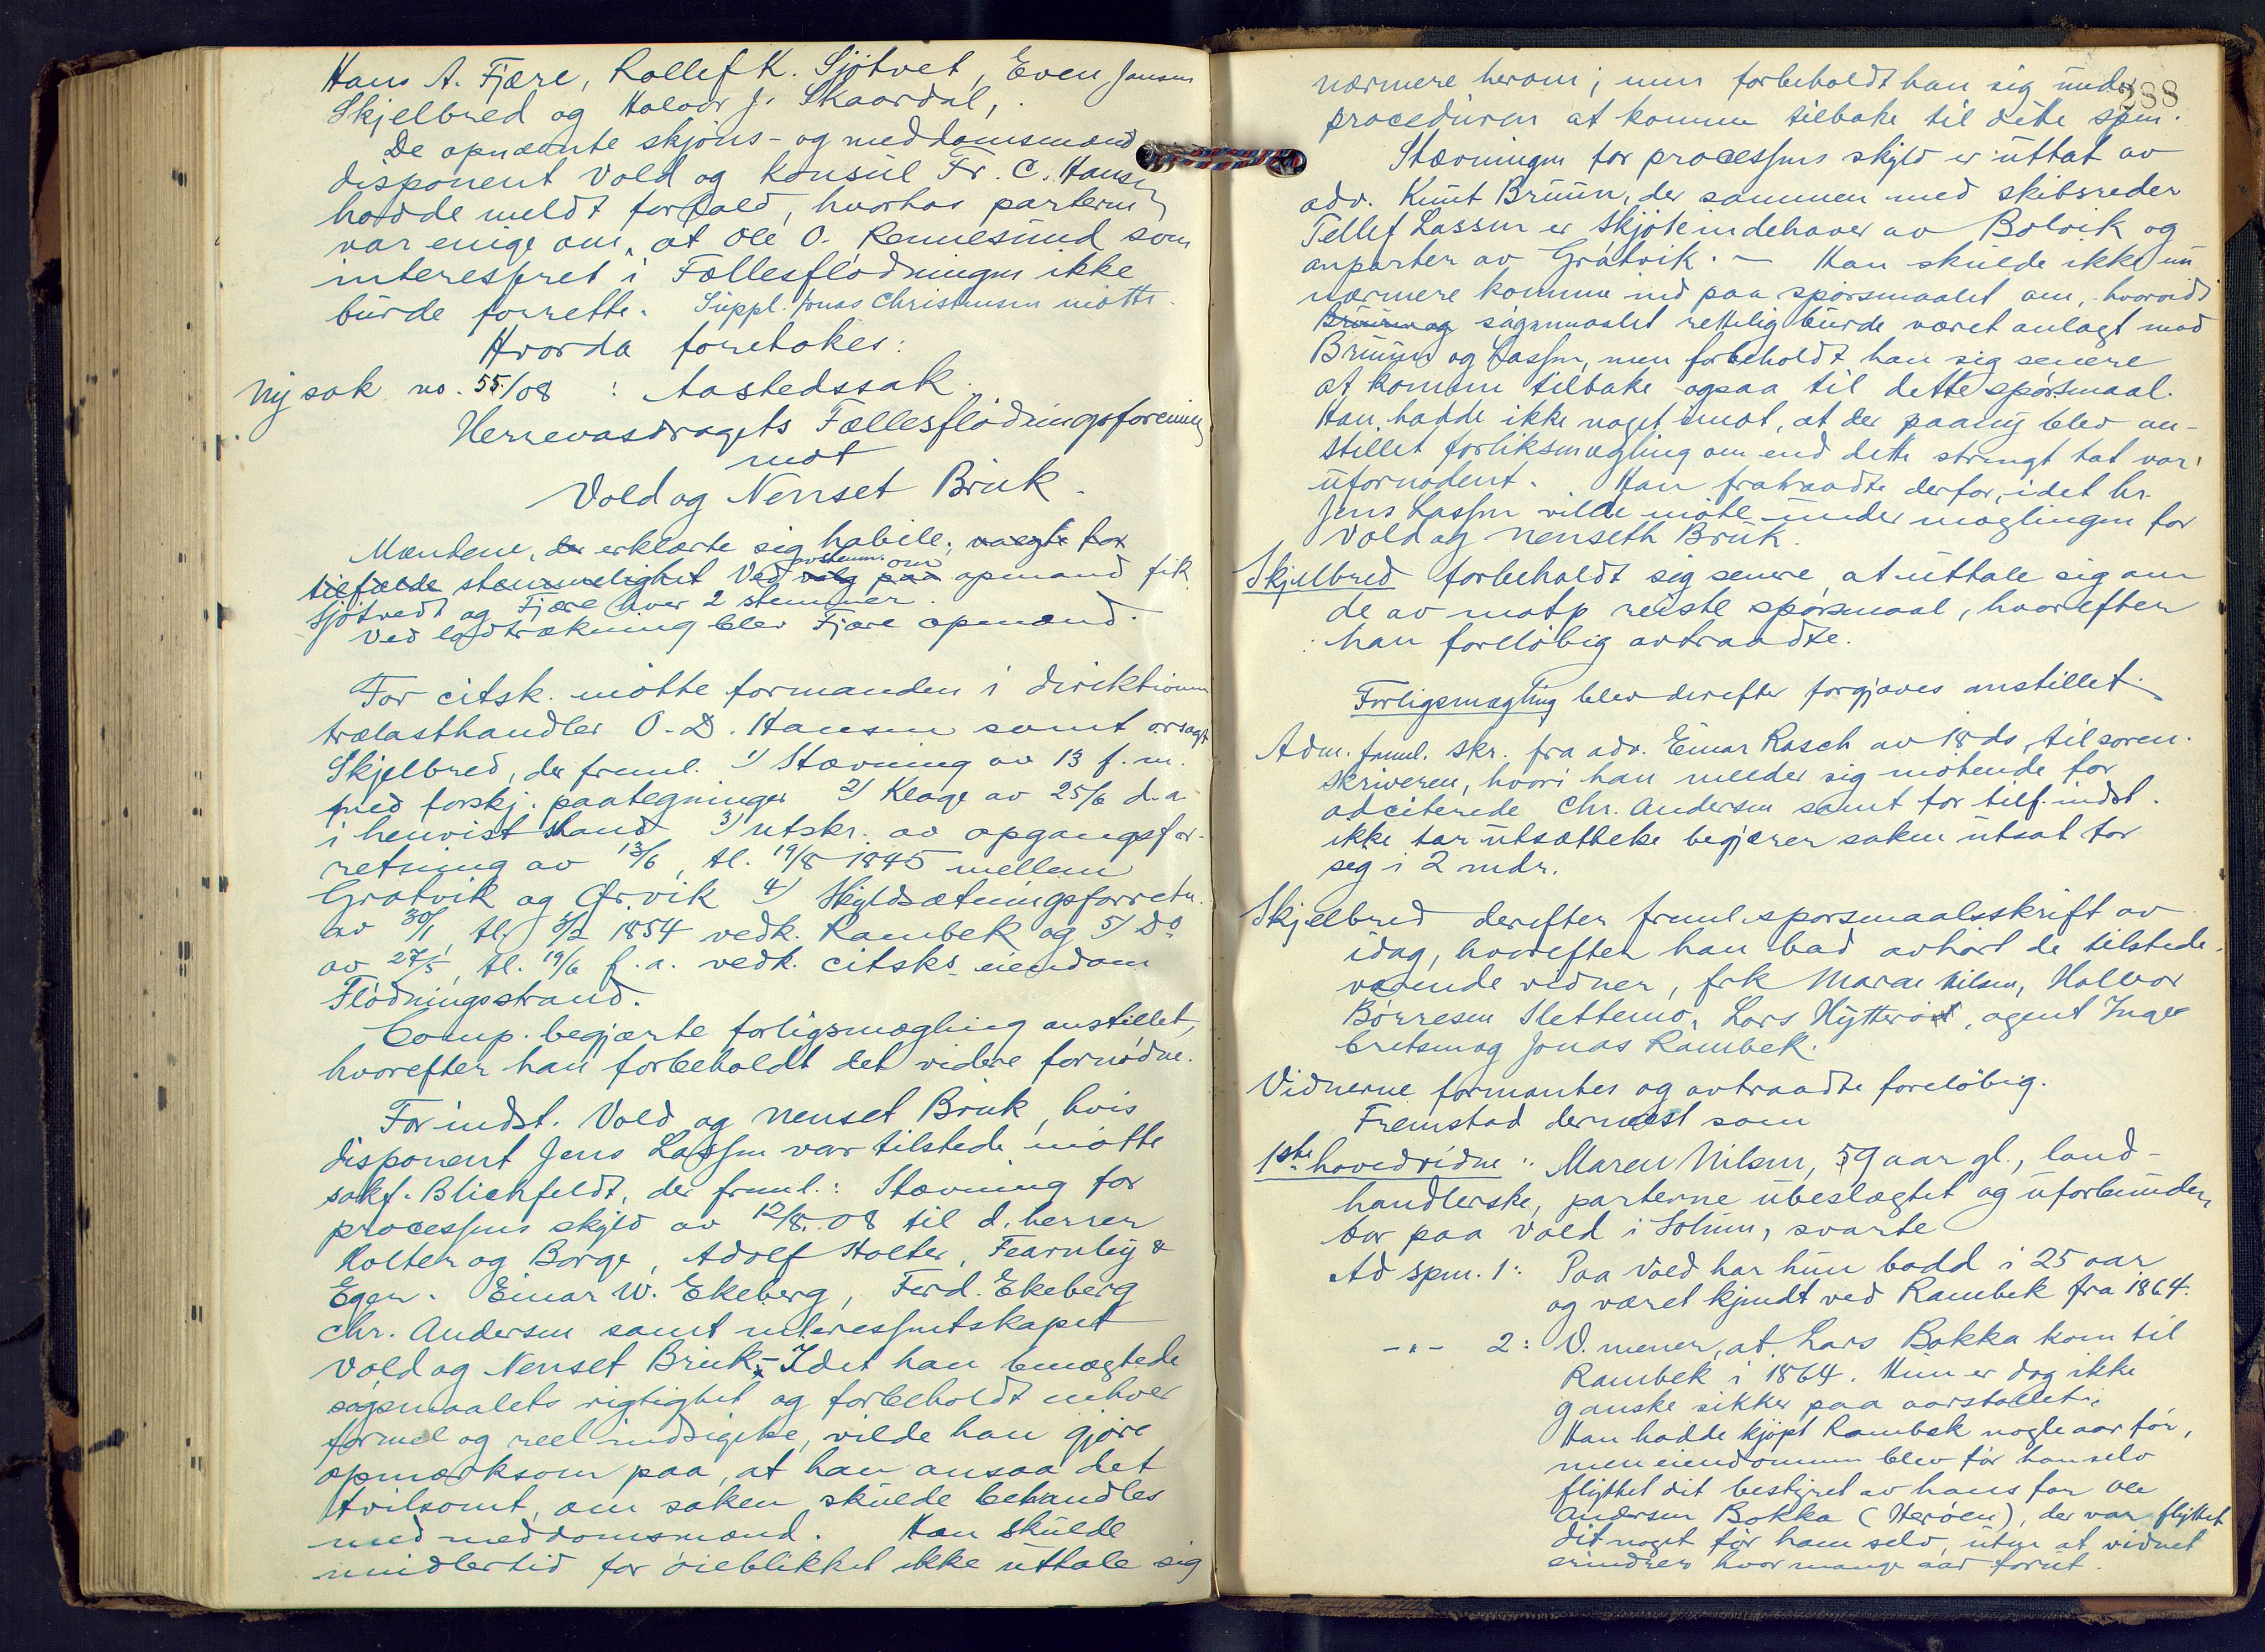 Hans A. Fjære, Rollef K. Sjøtvet, Even Jansen
Skjelbred og Halvor J. Skaardal,
De opnævnte skjøns- og meddomsmænd
disponent Vold og konsul Fr. C. Hansen
hadde meldt forfald, hvorhos parterne
var enige om, at Ole O. Rennesund som
interesseret i Fællesfløtningen ikke
burde forrette. Suppl. Jonas Christensen møtte.
Hvorda foretokes:
Ny sak no. 55/08 : Aastedssak.
Herrevasdragets Fællesflødningsforening
mot
Vold og Nenset Bruk.
Mændene, der erklærte sig habile, valgte for
tilfælde stemmelighet Ved valg paa avstemn. om opmand fik
Sjøtvedt og Fjære hver 2 stemmer.
Ved lodtrækning blev Fjære opmand.
For citsk. møtte formanden i direktionen
trælasthandler O. D. Hansen samt o.r.sagf.
Skjelbred, der freml. 1) Stævning av 13 f. m.
med forskj. paategninger 2) Klage av 25/6 d. a.
i henvist stand 3) utskr. av opgangsfor-
retning av 13/6, tl. 19/8 1845 mellem
Gratvik og Ørvik 4) Skyldsætningsforretn.
av 30/1, tl. 3/2 1854 vedk. Rambek og 5) Do
av 27/5, tl. 19/6 f. a. vedk. citsks eiendom
Flødningsstrand.
Comp. begjærte forligsmægling anstillet,
hvorefter han forbeholdt det videre fornødne.
For indst. Vold og Nenset Bruk, hvis
disponent Jens Lassen var tilstede møtte
sakf. Blichfeldt, der freml.: Stævning for
processens skyld av 12/8. 08 til d. herrer
Holter og Borge, Adolf Holter, Fearnley &
Eger. Einar W. Ekeberg, Ferd. Ekeberg
Chr. Andersen samt interessentskapet
Vold og Nenset Bruk. - Idet han benægtede
søgsmaalets rigtighet og forbeholdt enhver
formel og reel indsigelse, vilde han gjøre
opmærksom paa, at han ansaa det
tvilsomt, om saken skulde behandles
med meddomsmænd. Han skulde
imidlertid for øieblikket ikke uttale sig
288
nærmere herom; men forbeholdt han sig under
proceduren at komme tilbake til dette spm.
Stævningen for processens skyld er uttat av
adv. Knut Bruun, der sammen med skibsreder
Tellef Lassen er skjøteindehaver av Bolvik og
anparter av Gratvik. - Han skulde ikke nu
nærmere komme ind paa spørsmaalet om, hvorvidt
Bruun og søgsmaalet rettelig burde været anlagt mod
Bruun og Lassen, men forbeholdt han sig senere
at komme tilbake ogsaa til dette spørsmaal.
Han hadde ikke noget imot, at der paany blev an-
stillet forliksmægling om end dette strengt tat var
ufornødent. Han fratraadte derfor, idet hr.
Jens Lassen vilde møte under mæglingen for
Vold og Nenseth Bruk.
Skjelbred forbeholdt sig senere at uttale sig om
de av motp reiste spørsmaal, hvorefter
han foreløbig avtraadte.
Forligsmægling blev derefter forgjæves anstillet.
Adm. freml. skr. fra adv. Einar Rasch av 18 ds. til soren-
skriveren, hvori han melder sig møtende for
adciterede Chr. Andersen samt for tilf. indst.
ikke tar utsættelse begjærer saken utsat for
seg i 2 mdr.
Skjelbred derefter freml. spørsmaalsskrift av
idag, hvorefter han bad avhørt de tilstede-
værende vidner, frk Maren Nilsen, Halvor
Børresen Slettemo, Lars Hytterød, agent Inge-
bretsen og Jonas Rambek.
Vidnerne formantes og avtraadte foreløbig.
Fremstod dernæst som
1ste hovedvidne: Maren Nilsen, 59 aar gl., land-
handlerske, parterne ubeslægtet og uforbunden
bor paa Vold i Solum, svarte
Ad spm. 1: Paa Vold har hun bodd i 25 aar
og været kjendt ved Rambek fra 1864.
-"- 2: V. mener, at Lars Bakka kom til
Rambek i 1864. Hun er dog ikke
ganske sikker paa aarstallet.
Han hadde kjøpt Rambek nogle aar før,
men eiendommen blev før han selv
flyttet dit bestyret av hans far Ole
Andersen Bakka (Herøen), der var flyttet
dit noget før ham selv, uten at vidnet
erindrer hvor mange aar forut.